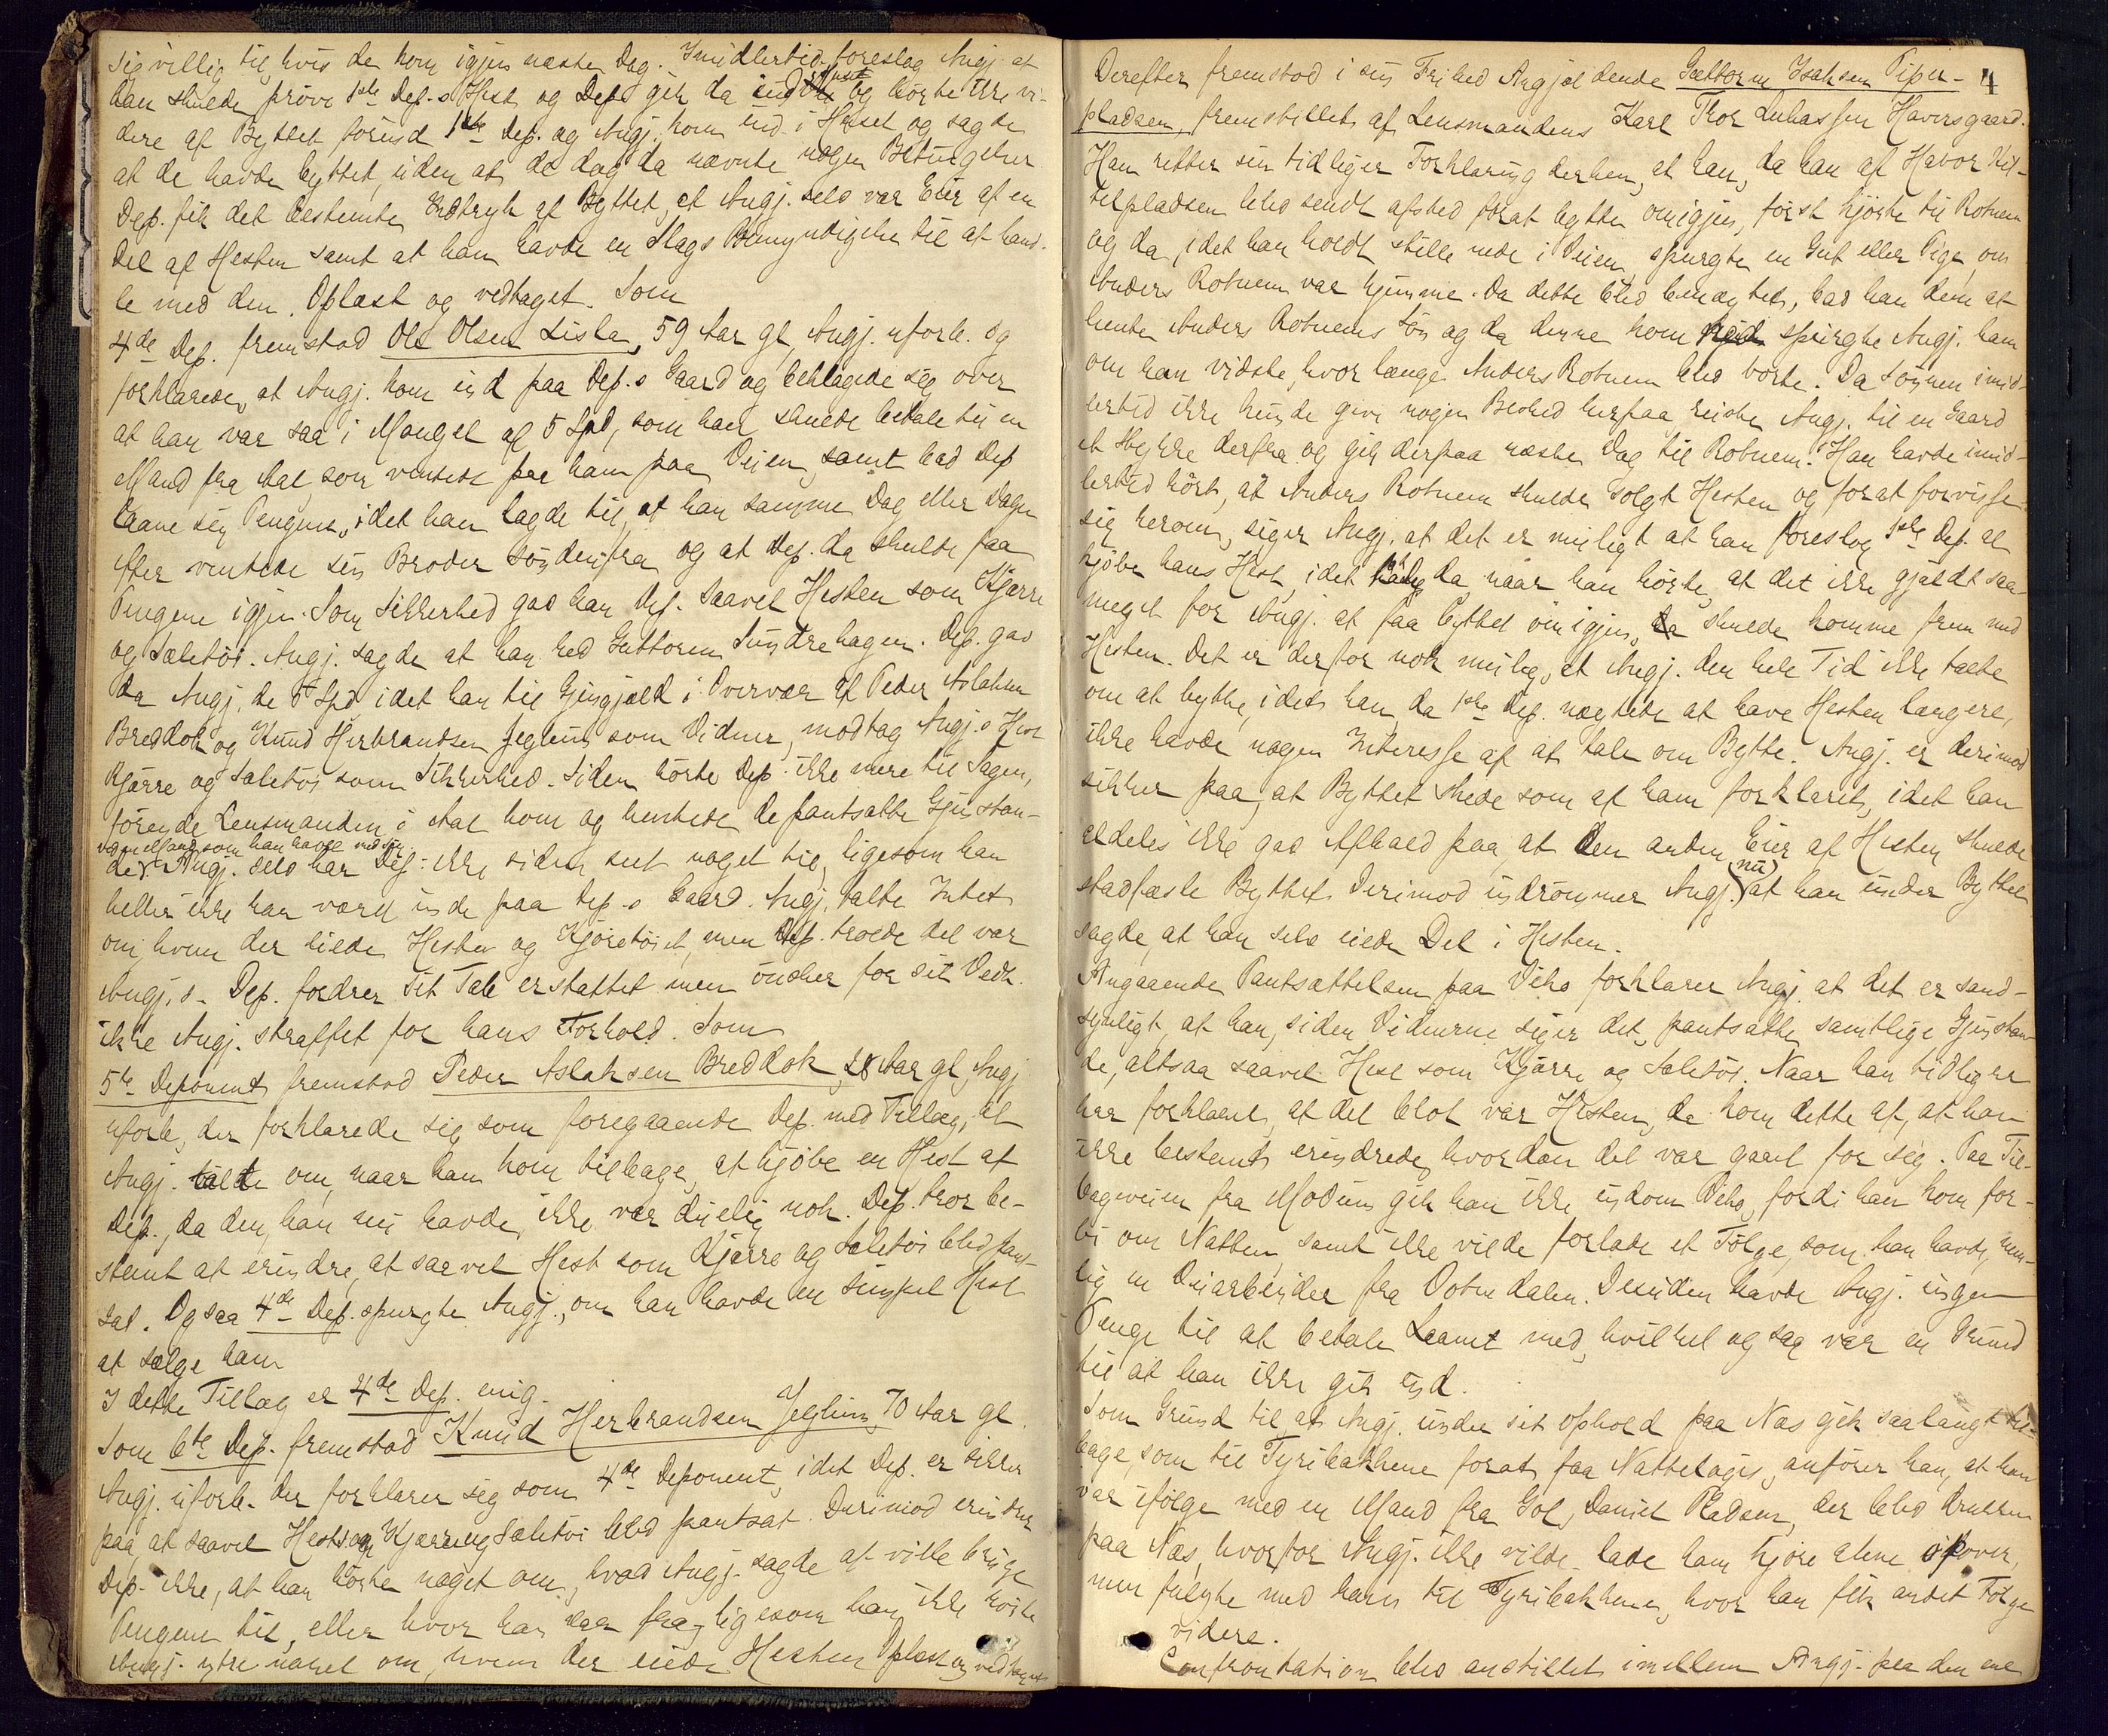 sig villig til, hvis de kom igjen næste Dag. Imidlertid foreslog Angj. at
han skulde prøve 1ste Dep.s Hest og Dep. gik da ind og hørte ikke vi-
dere af Byttet førend 1ste Dep. og Angj. kom ind i Huset og sagde
at de havde byttet, uden at de dog da nævnte nogen Betingelser.
Dep. fik det bestemte Indtryk af Byttet, at Angj. selv var Eier af en
Del af Hesten samt at han havde en Slags Bemyndigelse til at hand-
le med den. Oplæst og vedtaget. Som
4de Dep. fremstod Ole Olsen Lisla, 59 Aar gl, Angj. uforb. og
forklarede, at Angj. kom ind paa Dep.s Gaard og beklagede sig over
at han var saa i Mangel af 5 Spd, som han skulde betale til en
Mand fra Aal, som ventede paa ham paa Veien, samt bad Dep
laane sig Pengene, idet han lagde til, at han samme Dag eller Dagen
efter ventede sin Broder søndenfra og at Dep. da skulde faa
Pengene igjen. Som Sikkerhed gav han Dep. saavel Hesten som Kjærre
og Sæletøi. Angj. sagde at han hed Guttorm Sundrehagen. Dep. gav
da Angj. de 5 Spd idet han til Gjengjæld i Overvær af Peder Aslaksen
Breddok og Knud Herbrandsen Jeglum som Vidner, modtog Angj.s Hest
Kjærre og Sæletøi som Sikkerhed. Siden hørte Dep. ikke mere til Sagen,
førend Lensmanden i Aal kom og hentede de pantsatte Gjenstan-
der. Angj. selv har Dep. ikke siden seet noget til, ligesom han
heller ikke har været inde paa Dep.s Gaard. Angj. talte Intet
om, hvem der eiede Hesten og Kjøretøiet, men Dep. troede det var
Angj.s. Dep. fordrer sit Tab erstattet men ønsker for sit Vedk.
ikke Angj. straffet for hans Forhold. Som
5te Deponent fremstod Peder Aslaksen Breddok, 28 Aar gl, Angj
uforb, der forklarede sig som foregaaende Dep. med Tillæg, at
Angj. talte om, naar han kom tilbage, at kjøbe en Hest af
Dep., da den, han nu havde, ikke var duelig nok. Dep. tror be-
stemt at erindre, at saavel Hest som Kjærre og Sæletøi blev pant-
sat. Ogsaa 4de Dep. spurgte Angj., om han havde en simpel Hest
at sælge ham
I dette Tillæg er 4de Dep. enig.
Som 6te Dep. fremstod Knud Herbrandsen Jeglum, 70 Aar gl.
Angj. uforb. der forklarer sig som 4de Deponent, idet Dep. er sikker
paa, at saavel Hest som Kjærre og Sæletøi blev pantsat. Derimod erindrer
Dep. ikke, at han hørte noget om, hvad Angj. sagde at ville bruge
Pengene til, eller hvor han var fra, ligesom han ikke hørte
Angj. ytre noget om, hvem der eiede Hesten. Oplæst og vedtaget
4
Derefter fremstod i sin Frihed Angjældende Guttorm Isaksen Piper-
pladsen, fremstillet af Lensmandens Karl Thor Lukassen Haversgaard.
Han retter sin tidligere Forklaring derhen, at han, da han af Havor Kit-
tilpladsen blev sendt afsted forat bytte omigjen, først kjørte til Rotnem
og da, idet han holdt stille nede i Veien, spurgte en Gut eller Pige, om
Anders Rotnem var hjemme. Da dette blev benægtet, bad han dem at
hente Anders Rotnems Søn og da denne kom ned spurgte Angj. ham
om han vidste, hvor længe Anders Rotnem blev borte. Da Sønnen imid-
lertid ikke kunde give nogen Besked herpaa reiste Angj. til en Gaard
et Stykke derfra og gik derpaa næste Dag til Rotnem. Han havde imid-
lertid hørt, at Anders Rotnem skulde solgt Hesten og forat forvisse
sig herom, siger Angj. at det er muligt at han foreslog 1ste Dep. at
kjøbe hans Hest, idet da naar han hørte, at det ikke gjældt saa
meget for Angj. at faa byttet omigjen, skulde komme frem med
Hesten. Det er derfor nok mulig, at Angj. den hele Tid ikke talte
om at bytte, idet han, da 1ste Dep. nægtede at have Hesten længere,
ikke havde nogen Interesse af at tale om Bytte. Angj. er derimod
sikker paa, at Byttet skede som af ham forklaret, idet han
aldeles ikke gav Afkald paa, at den anden Eier af Hesten skulde
stadfæste Byttet. Derimod indrømmer Angj. nu at han under Byttet
sagde, at han selv eiede Del i Hesten.
Angaaende Pantsættelsen paa Viko forklarer Angj. at det er sand-
synligt, at han, siden Vidnerne siger det, pantsatte samtlige Gjenstan-
de, altsaa saavel Hest som Kjærre og Sæletøi. Naar han tidligere
har forklaret, at det blot var Hesten, da kom dette af, at han
ikke bestemt erindrede, hvordan det var gaaet for sig. Paa Til-
bageveien fra Modum gik han ikke indom Viko, fordi han kom for-
bi om Natten, samt ikke vilde forlade et Følge, som han havde, nem-
lig en Veiarbeider fra Østerdalen. Desuden havde Angj. ingen
Penge til at betale Laanet med, hvilket ogsaa var en Grund
til at han ikke gik ind.
Som Grund til, at Angj. under sit Ophold paa Næs gik saalangt til-
bage, som til Tyribakkene forat faa Nattelogis, anfører han, at han
var ifølge med en Mand fra Gol, Daniel Pladsen, der blev drukken
paa Næs, hvorfor Angj. ikke vilde lade ham kjøre alene opover,
men fulgte med ham til Tyribakkene, hvor han fik andet Følge
videre.
Confrontation blev anstillet imellem Angj. paa den ene